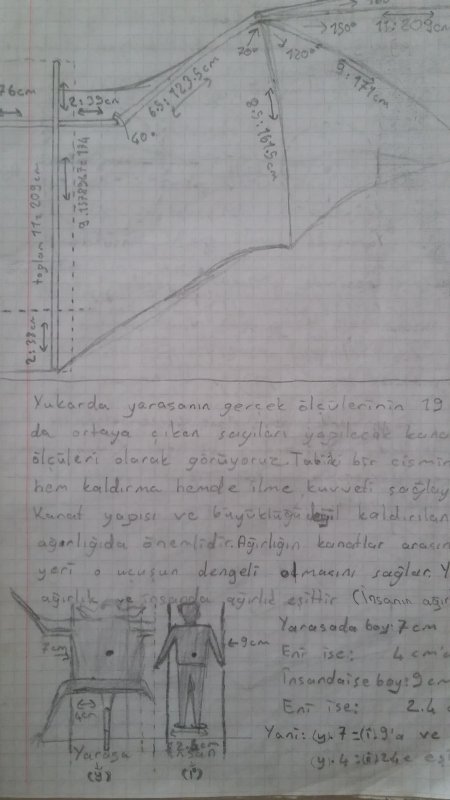 160°
150°
11:209cm
70°
120°
9:171cm
76cm
2:39cm
6.5:123.5cm
60°
8.5:161.5cm
toplam 11:209cm
2:38cm
Yukarda yarasanın gerçek ölçülerinin 19
da ortaya çıkan sayıları yapılacak kana
ölçüleri olarak görüyoruz. Tabiki bir cismin
hem kaldırma hemde ilme kuvveti sağlay
Kanat yapısı ve büyüklüğü kaldırılan
ağırlığıda önemlidir. Ağırlığın kanatlar arasın
yeri o uçuşun dengeli olmasını sağlar. Y
ağırlık ve insanda ağırlık eşittir (İnsanın ağır
Yarasada boy: 7cm
Eni ise: 4 cm'd
İnsandaise boy: 9cm
Eni ise: 2.4 c
Yani: (y).7=(i).9'a ve
(y).4=(i)2.4e eş
7cm
9cm
Yarasa
(y)
insan
(i)